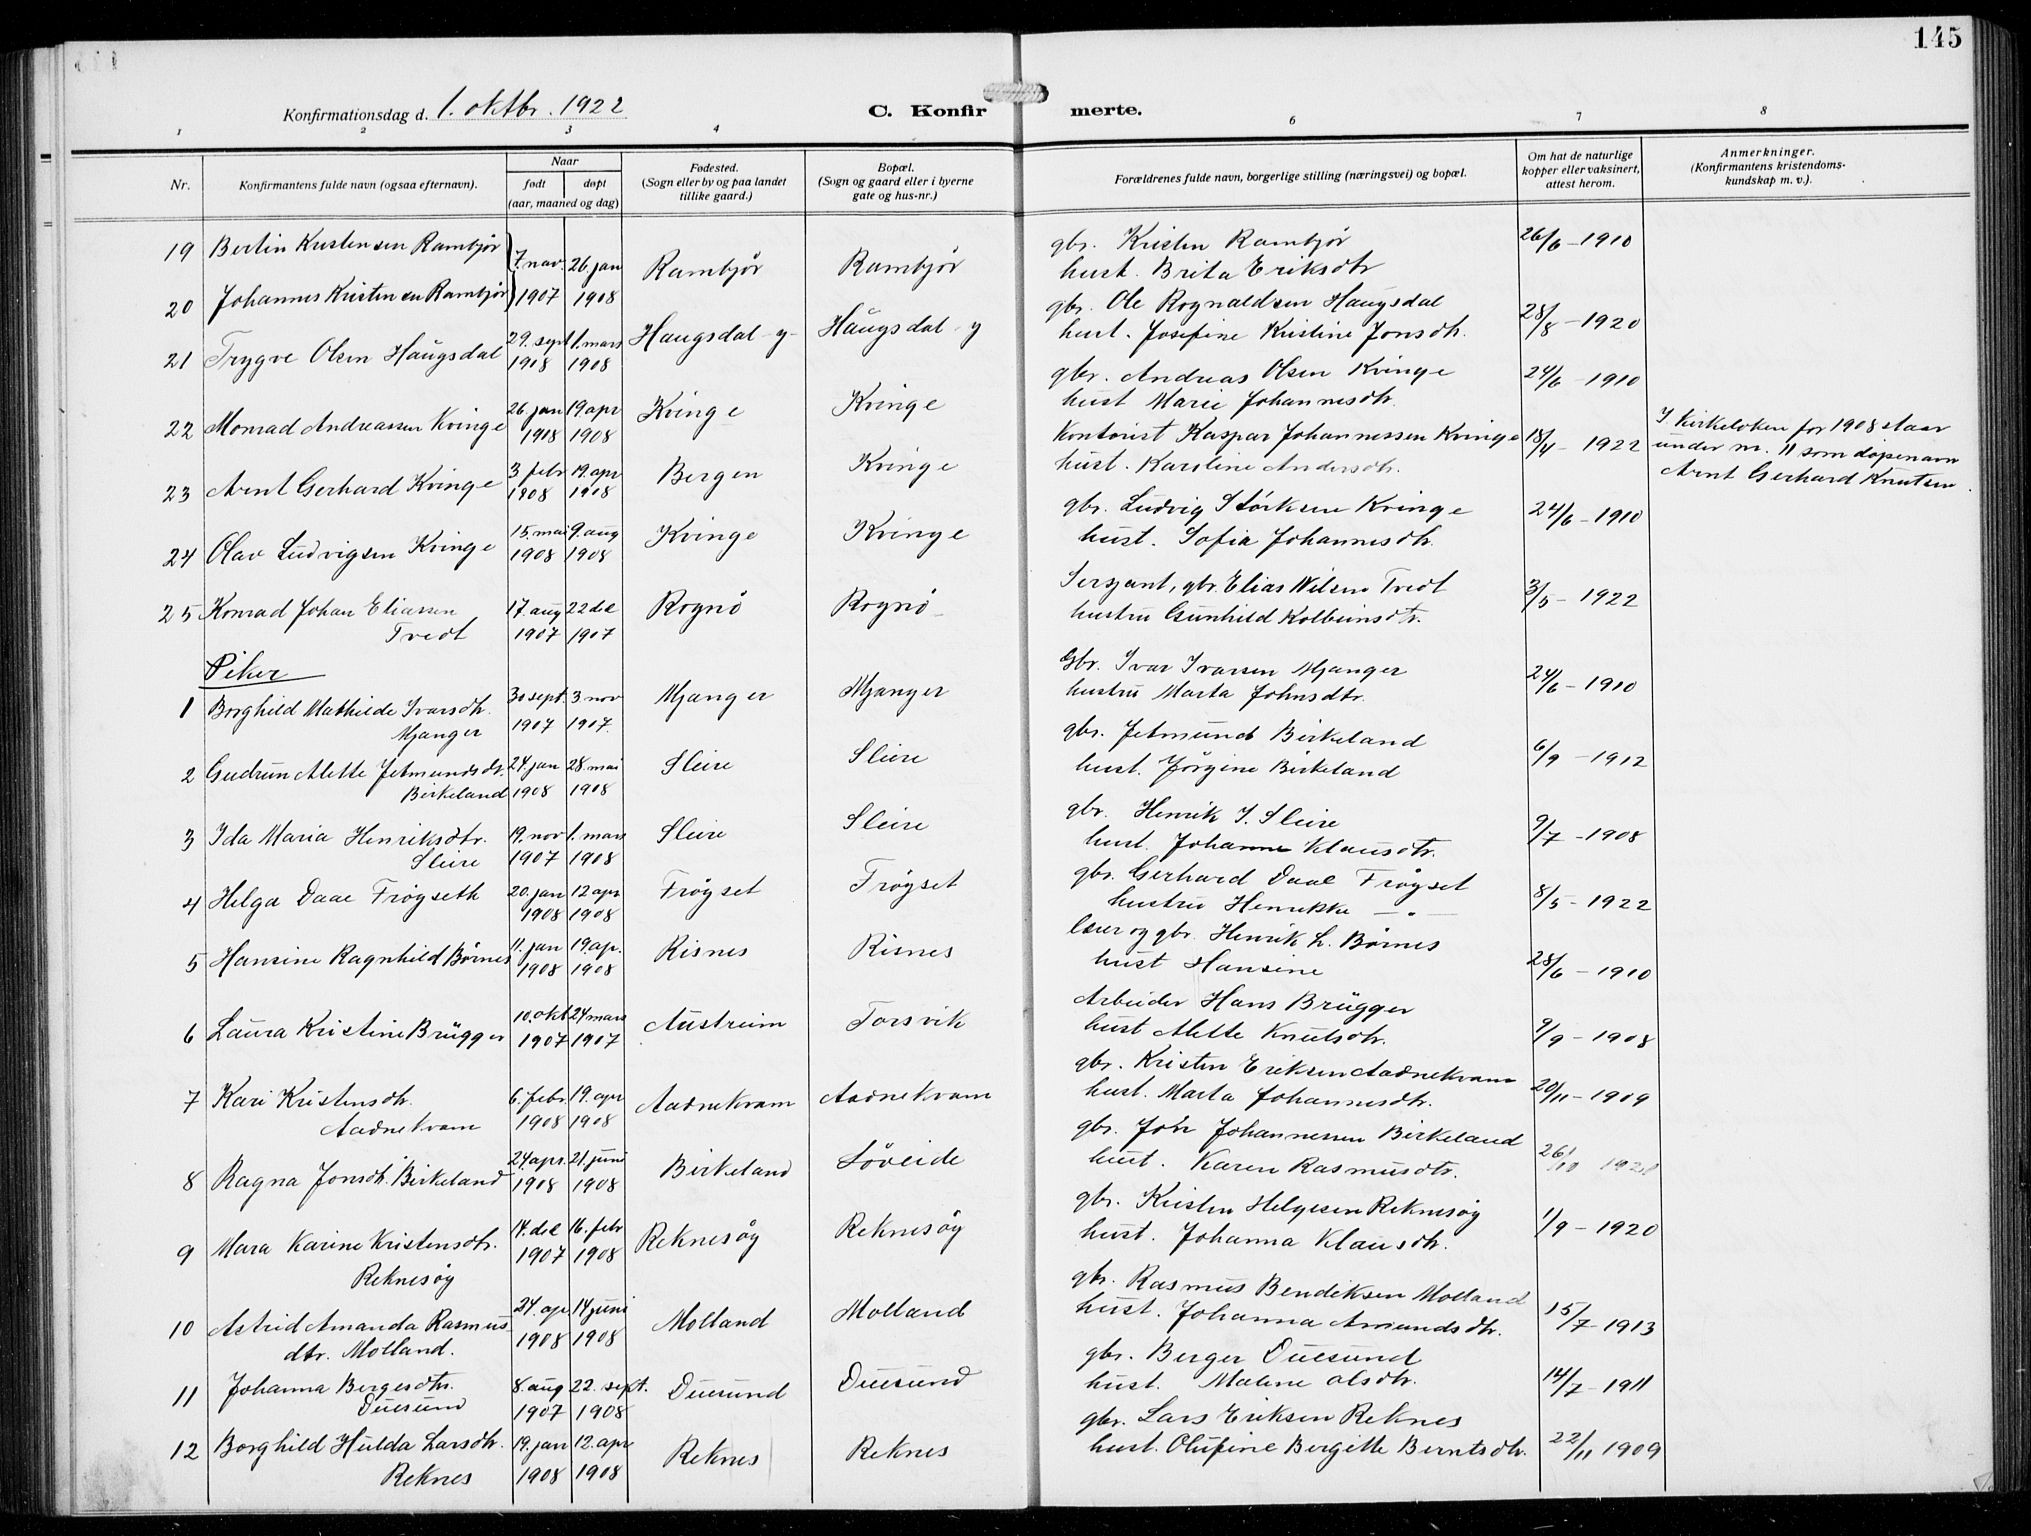 145
Konfirmationsdag d. 1. oktbr. 1922
C. Konfirmerte.
1 2 3 4 5 6 7 8
Nr.
Konfirmantens fulde navn (ogsaa efternavn).
Naar
født døpt
(aar, maaned og dag)
Fødested.
(Sogn eller by og paa landet
tillike gaard.)
Bopæl.
(Sogn og gaard eller i byerne
gate og hus-nr.)
Forældrenes fulde navn, borgerlige stilling (næringsvei) og bopæl.
Om hat de naturlige
kopper eller vaksinert,
attest herom.
Anmerkninger.
(Konfirmantens kristendoms-
kundskap m. v.).
19 Bertin Kristensen Rambjør 7. nov. 26. jan Rambjør Rambjør gbr. Kristen Rambjør 26/6 - 1910
hust. Brita Eriksdtr
20 Johannes Kristensen Rambjør 1907 1908
21 Trygve Olsen Haugsdal 29. sept 1. mars Haugsdal y- Haugsdal y gbr. Ole Rognaldsen Haugsdal 28/8 - 1920
1908 1908 hust. Josefine Kristine Jonsdtr.
22 Monrad Andreassen Kvinge 26. jan 19 apr Kvinge Kvinge gbr. Andreas Olsen Kvinge 24/6 - 1910
1908 1908 hust Marie Johannesdtr.
23 Arnt Gerhard Kvinge 3 febr 19. apr Bergen Kvinge Kontorist Kaspar Johannessen Kvinge 18/4 - 1922
1908 1908 hust. Karoline Andersdtr.
I kirkeboken for 1908 staar
under nr. 11 som døpenavn
Arnt Gerhard Knutsen.
24 Olav Ludvigsen Kvinge 15. mai 9. aug Kvinge Kvinge gbr. Ludvig Størksen Kvinge 24/6 - 1910
1908 1908 hust. Sofia Johannesdtr.
25 Konrad Johan Eliassen 17. aug 22 de Rognø Rognø Sersjant, gbr. Elias Nilsen Tvedt 3/5 - 1922
Tvedt 1907 1907 hustru Gunhild Kolbeinsdtr.
Piker
1 Borghild Mathilde Ivarsdtr. 30 sept. 3 nov Mjanger Mjanger Gbr. Ivar Ivarsen Mjanger 24/6 - 1910
Mjanger 1907 1907. hustru Marta Johnsdtr.
2 Gudrun Alette Jetmundsdtr. 24. jan 28. mai Sleire Sleire gbr. Jetmund Birkeland 6/9 - 1912
Birkeland 1908 1908 hust. Jørgine Birkeland
3 Ida Maria Henriksdtr. 19. nov 1. mars Sleire Sleire gbr. Henrik I. Sleire 9/7 - 1908
Sleire 1907 1908 hust. Johanne Klausdtr.
4 Helga Daae Frøyseth 20. jan 12 apr Frøyset Frøyset gbr. Gerhard Daae Frøyset 8/5 - 1922
1908 1908 hustru Henrikke — " —
5 Hansine Ragnhild Børnes 11. jan 19. ap. Risnes Risnes lærer og gbr. Henrik L. Børnes 28/6 - 1910
1908 1908 hust Hansine
6 Laura Kristine Brügger 10. okt 24 mars Austreim Torsvik Arbeider Hans Brügger 9/9 - 1908
1907 1907 hust Alette Knutsdtr.
7 Kari Kristensdtr. 6. febr. 19. apr Aadnekvam Aadnekvam gbr. Kristen Eriksen Aadnekvam 20/11 - 1909
Aadnekvam 1908 1908 hust. Marta Johannesdtr.
8 Ragna Jonsdtr. Birkeland 24. apr. 21. juni Birkeland Løveide gbr. John Johannessen Birkeland 26/10
1908 1908 hust. Karen Rasmusdtr.
9 Mara Karine Kristensdtr. 14. de 16. febr Reknesøy Reknesøy gbr. Kristen Helgesen Reknesøy 1/9 - 1920
Reknesøy 1907 1908 hust. Johanna Klausdtr.
10 Astrid Amanda Rasmus- 24. ap 14 juni Molland Molland gbr. Rasmus Bendiksen Molland 15/7 - 1913
dtr. Molland. 1908 1908 hust. Johanna Amundsdtr.
11 Johanna Bergesdtr. 8. aug 22. sept. Duesund Duesund gbr. Berger Duesund 14/7 - 1911
Duesund 1907 1908 hust. Malene Olsdtr.
12 Borghild Hulda Larsdtr. 19. jan 12. apr Reknes Reknes gbr. Lars Eriksen Reknes 22/11 1909
Reknes 1908 1908 hust. Olufine Bergitte Berntsdtr.